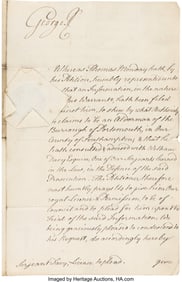 George R
Whereas Thomas Whitday hath, by
his Petition, humbly represented unto Us
that an Information, in the nature
Quo Warranto, hath been filed
against him, to shew by what Authority
he claims to be an Alderman of the
Borough of Portsmouth, in Our
County of Southampton; & that he
hath consulted & advised with William
Davy Esquire, One of Our Serjeants learned
in the Law, in the Defence of the said
Prosecution. The Petitioner therefore
most humbly prays Us to give him Our
royal Licence & Permission, to be of
Council and to plead for him upon the
Trial of the said Information. We
being graciously pleased to condescend to
his Request, do accordingly hereby
give
Serjeant Davy, Licence to plead.
Image by Heritage Auctions, HA.com